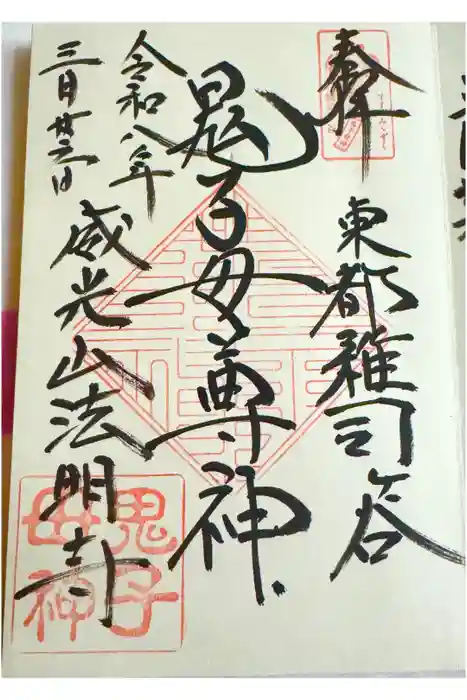 奉拝
東都雑司ヶ谷
鬼子母尊神
令和八年
三月廿三日
威光山法明寺
鬼子
母神